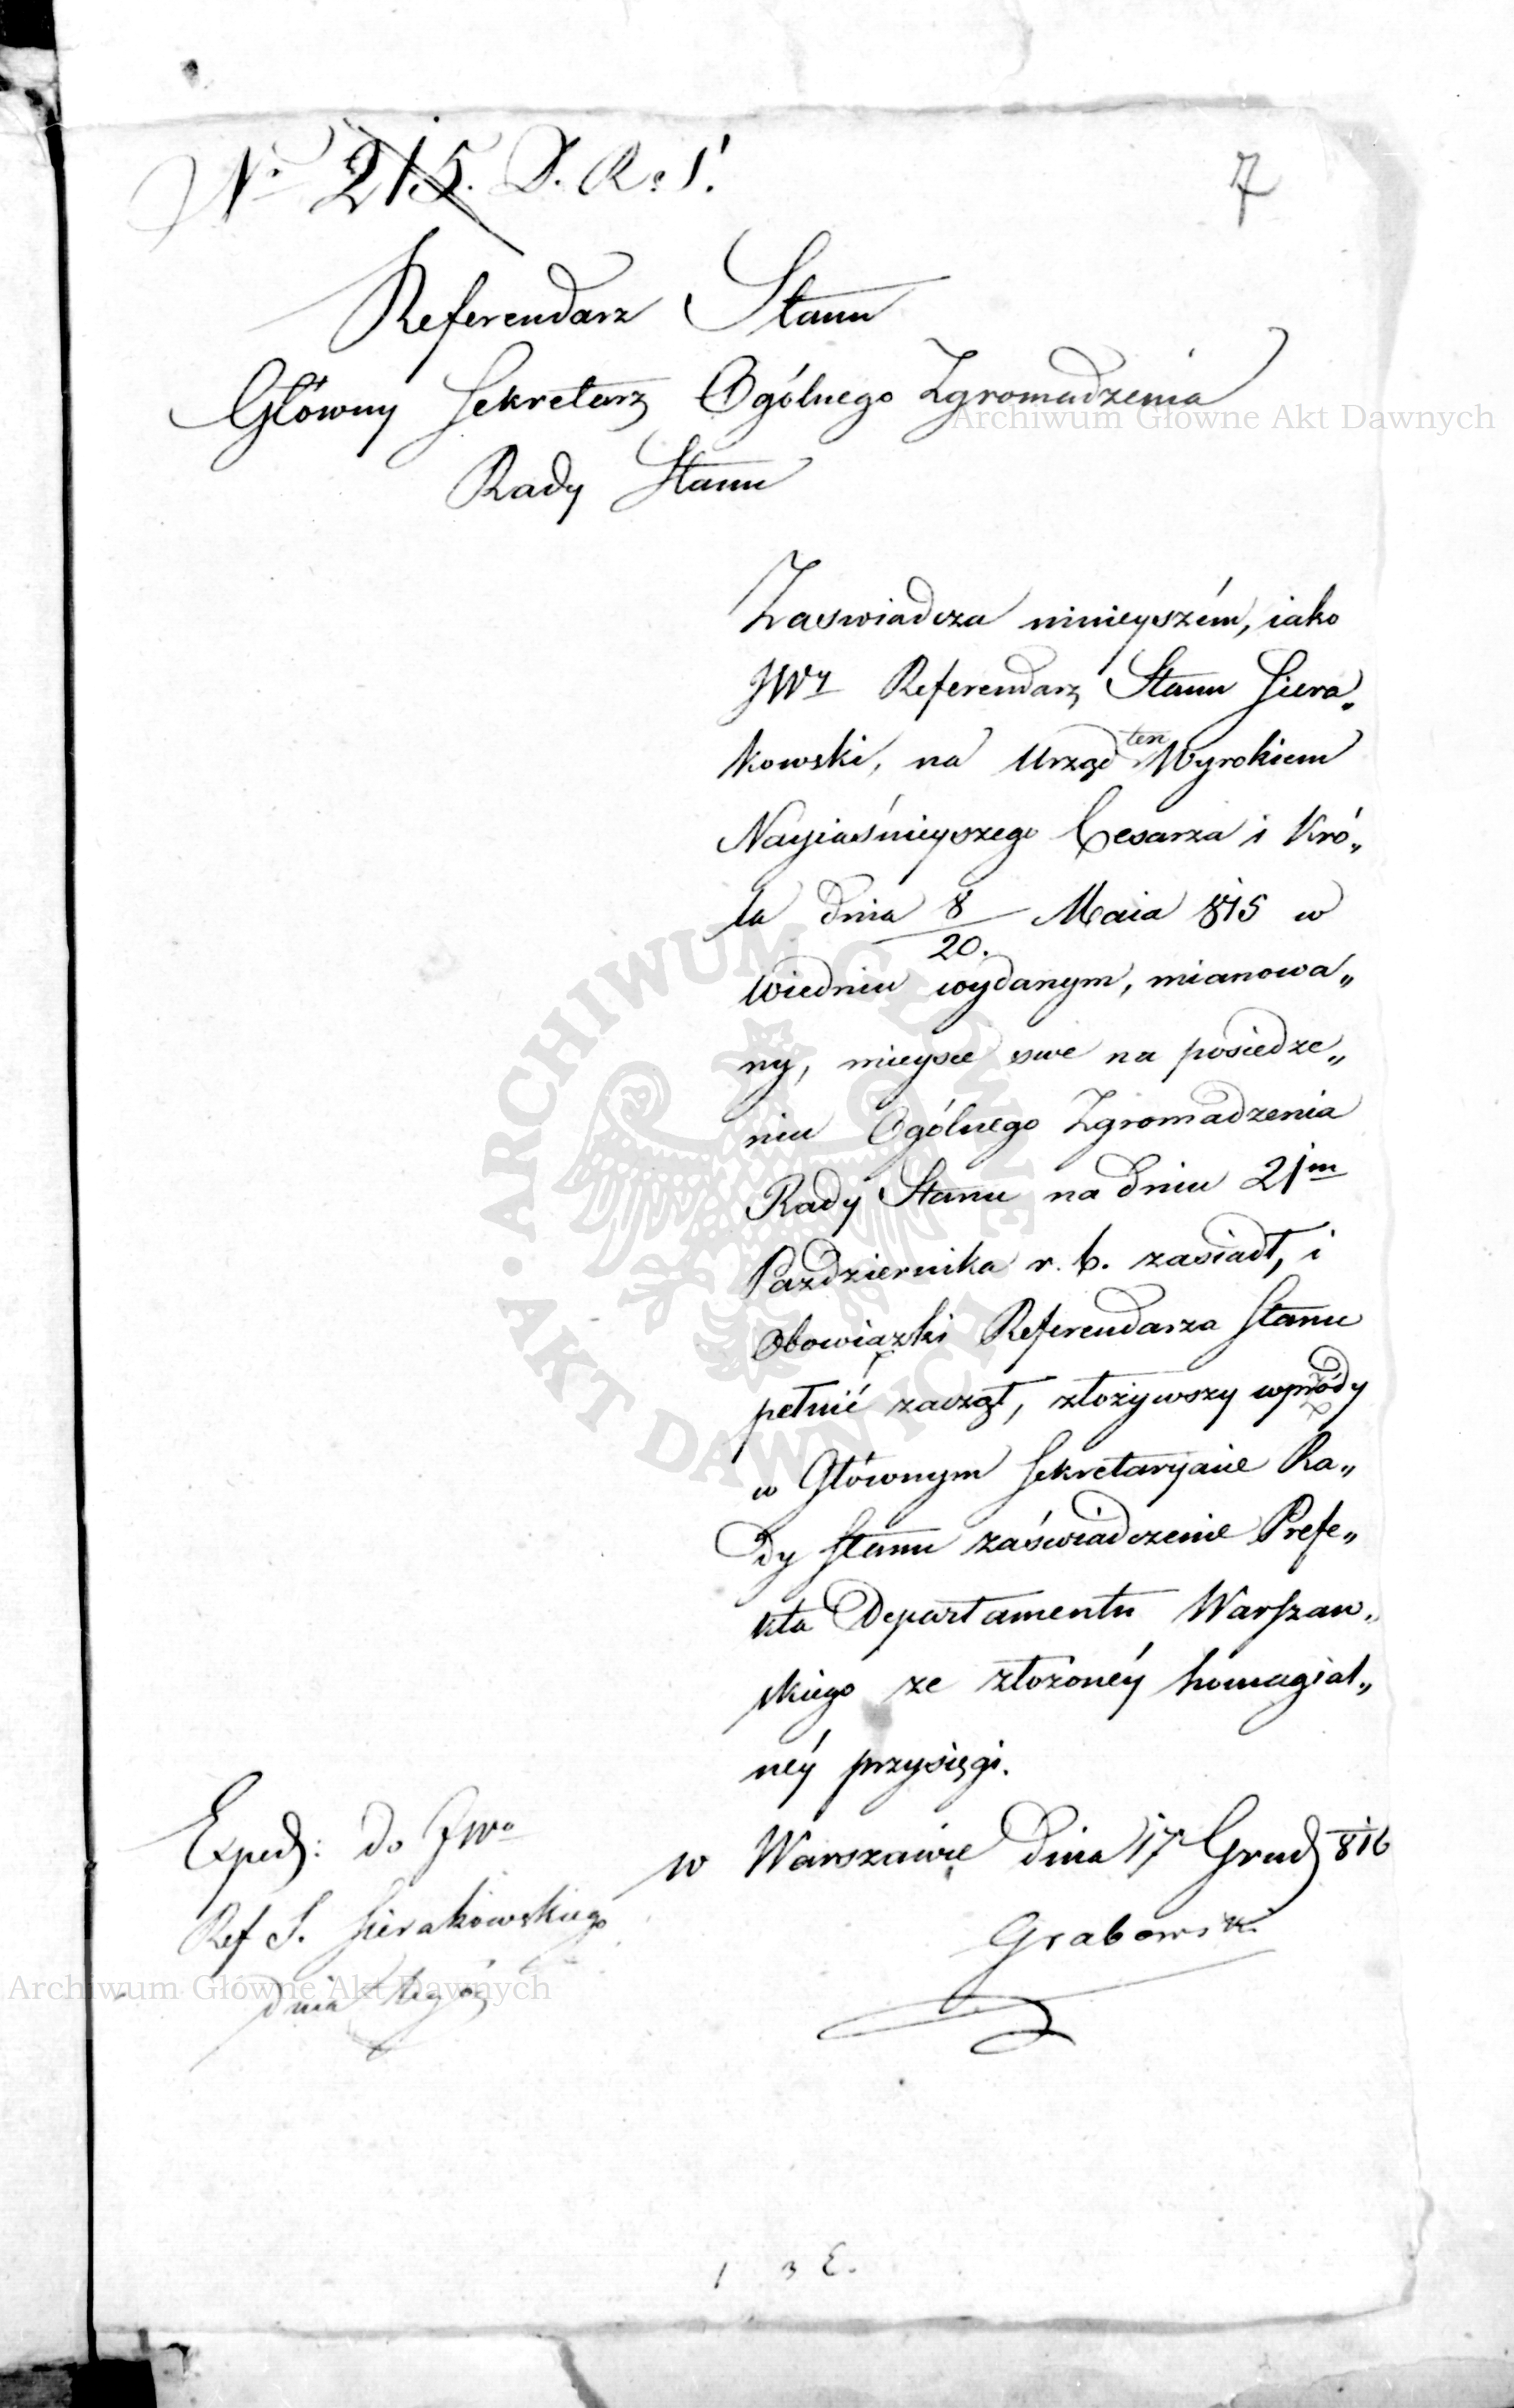 No 215. D. R. S.
7
Referendarz Stanu
Główny Sekretarz Ogólnego Zgromadzenia
Archiwum Główne Akt Dawnych
Rady Stanu
Zaswiadcza ninieyszém, iako
JWy Referendarz Stanu Siera„
kowski, na Urząd ten Wyrokiem
Nayiaśnieyszego Cesarza i Kró„
la dnia 8/20. Maia 815 w
Wiedniu wydanym, mianowa„
ny, mieysce swe na posiedze„
niu Ogólnego Zgromadzenia
Rady Stanu na dniu 21m
Października r. b. zasiadł, i
Obowiązki Referendarza Stanu
pełnić zaczął, złożywszy wprzódy
w Głównym Sekretaryacie Ra„
dy Stanu zaświadczenie Prefe„
kta Departamentu Warszaw„
skiego ze złożonéy homagial„
néy przysięgi.
w Warszawie dnia 17 Grud 816
Grabowski
Exped: do JWo
Ref S. Sierakowskiego
Archiwum Główne Akt Dawnych
dnia tegoż
ARCHIWUM GŁÓWNE AKT DAWNYCH